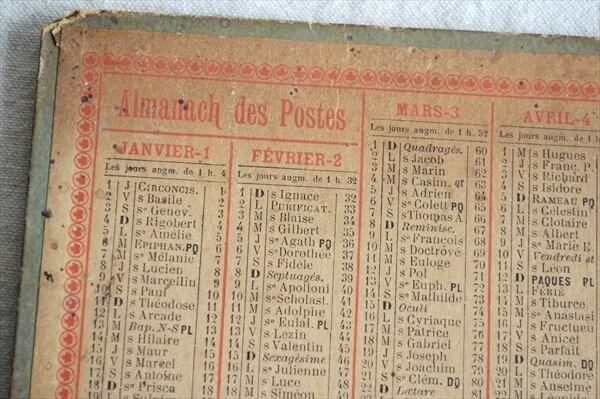 Almanach des Postes
JANVIER-1
Les jours augm. de 1 h. 4
1 J CIRCONCIS. 1
2 V s Basile 2
3 S se Genev. 3
4 D s Rigobert 4
5 L se Amélie 5
6 M EPIPHAN. PQ 6
7 M se Mélanie 7
8 J s Lucien 8
9 V s Marcellin 9
10 S s Paul 10
11 D s Théodose 11
12 L s Arcade 12
13 M Bap. N-S PL 13
14 M s Hilaire 14
15 J s Maur 15
16 V s Marcel 16
17 S s Antoine 17
18 D se Prisca 18
FÉVRIER-2
Les jours augm. de 1 h. 32
1 D s Ignace 32
2 L PURIFICAT. 33
3 M s Blaise 34
4 M s Gilbert 35
5 J se Agath PQ 36
6 V se Dorothée 37
7 S s Fidèle 38
8 D Septuagés. 39
9 L se Apolloni 40
10 M se Scholast. 41
11 M s Adolphe 42
12 J se Eulal. PL 43
13 V s Lezin 44
14 S s Valentin 45
15 D Sexagésime 46
16 L se Julienne 47
17 M s Luce 48
18 M s Siméon
MARS-3
Les jours augm. de 1 h. 52
1 D Quadragés. 60
2 L s Jacob 61
3 M s Marin 62
4 M s Casim. QT 63
5 J s Adrien 64
6 V se Colett PQ 65
7 S s Thomas A 66
8 D Reminisc. 67
9 L se François 68
10 M s Doctrové 69
11 M s Euloge 70
12 J s Pol 71
13 V se Euph. PL 72
14 S se Mathilde 73
15 D Oculi 74
16 L s Cyriaque 75
17 M s Patrice 76
18 M s Gabriel 77
19 J s Joseph 78
20 V s Joachim 79
21 S s Clém. DQ 80
22 D Lætare
AVRIL-4
Les jours augm. de 1 h.
1 M s Hugues
2 J s Franç. P.
3 V s Richard
4 S s Isidore
5 D RAMEAU PQ
6 L s Célestin
7 M s Clotaire
8 M s Albert
9 J se Marie E.
10 V Vendredi st
11 S s Léon
12 D PAQUES PL
13 L FÉRIÉ
14 M s Tiburce
15 M se Anastasi
16 J s Fructueu
17 V s Anicet
18 S s Parfait
19 D Quasim. DQ
20 L s Théodore
21 M s Anselme